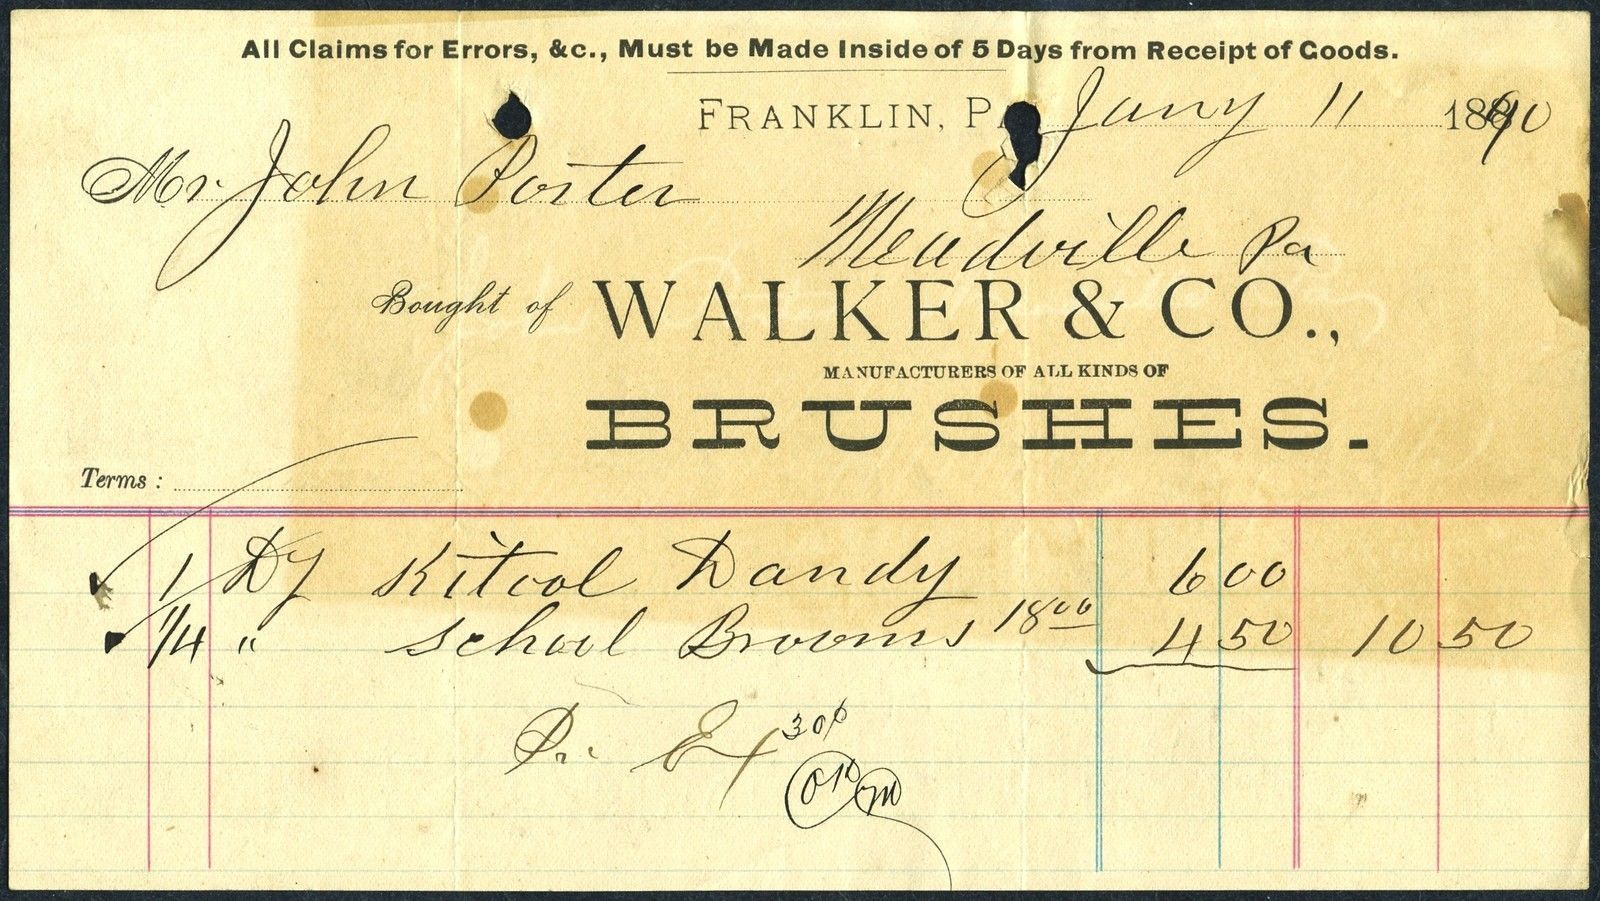 All Claims for Errors, &c., Must be Made Inside of 5 Days from Receipt of Goods.
FRANKLIN, PA Jany 11 1890
Mr John Porter
Meadville Pa
Bought of WALKER & CO.,
MANUFACTURERS OF ALL KINDS OF
BRUSHES.
Terms :
1 Dz Dandy 6 00
1/4 " School Brooms 18 00 4 50 10 50
Pr. Ex 30¢
OK M